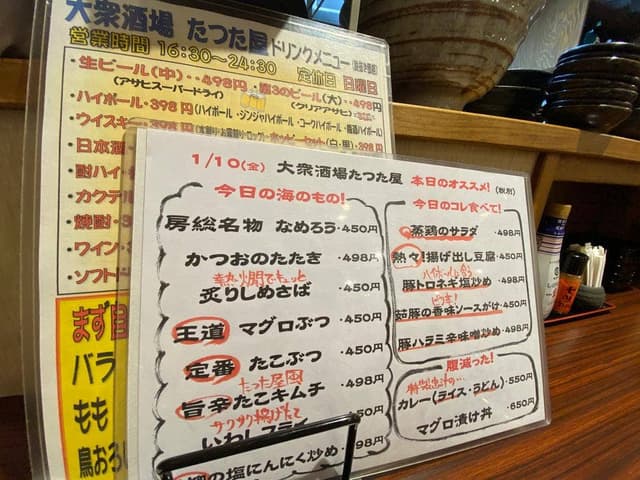 大衆酒場 たつた屋 ドリンクメニュー
営業時間 16:30～24:30 定休日 日曜日
・生ビール(中)・・498円
(アサヒスーパードライ)
(大)・・498円
(クリアアサヒ)
・ハイボール・398円(ハイボール・ジンジャハイボール・コークハイボール・
・ウイスキー・398円
(白・黒)・398円
・日本酒
・酎ハイ
・カクテル
・焼酎
・ワイン
・ソフト
まず
バラ
もも
鳥おろし
1/10(金) 大衆酒場たつた屋 本日のオススメ! (税別)
今日の海のもの!
房総名物 なめろう・450円
かつおのたたき ・498円
熱燗でもっと
炙りしめさば ・450円
王道 マグロぶつ ・450円
定番 たこぶつ ・450円
たつた屋風
旨辛たこキムチ ・498円
サクサク揚げたて
いわしフライ 450円
の塩にんにく炒め・498円
今日のコレ食べて!
蒸鶏のサラダ ・498円
熱々!揚げ出し豆腐・450円
ハイボールに合う
豚トロネギ塩炒め ・498円
茹豚の香味ソースがけ・450円
豚ハラミ辛味噌炒め・498円
腹減った!
カレー(ライス・うどん)・550円
マグロ漬け丼 ・650円